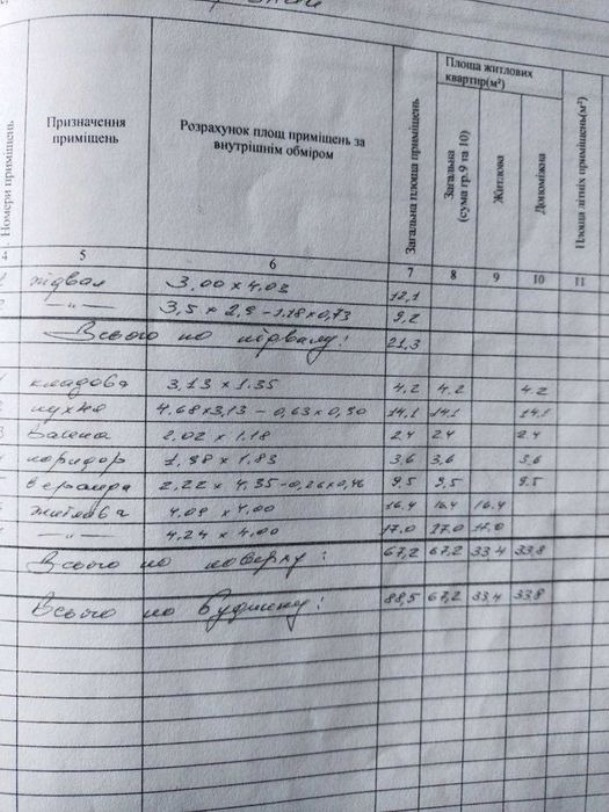 Номери приміщень
Призначення приміщень
Розрахунок площ приміщень за внутрішнім обміром
Загальна площа приміщень
Площа житлових квартир(м²)
Загальна (сума гр.9 та 10)
Житлова
Допоміжна
Площа літніх приміщень(м²)
4 5 6 7 8 9 10 11
підвал 3,00 x 4.02 12,1
—〃— 3,5 x 2,9 - 1.18 x 0,73 9,2
Всього по підвалу: 21,3
кладова 3,13 x 1.35 4,2 4,2 4.2
кухня 4.68x3,13 - 0,63 x 0,50 14,1 14,1 14,1
3 ванна 2.02 x 1.18 2.4 2.4 2.4
коридор 1,98 x 1.83 3,6 3,6 3,6
веранда 2,22 x 4.35 - 0,26x0,46 9,5 9,5 9.5
житлова 4,09 x 4.00 16.4 16.4 16.4
—〃— 4.24 x 4.00 17.0 17.0 17.0
Всього по поверху: 67,2 67,2 33.4 33,8
Всього по будинку: 88,5 67,2 33,4 33,8